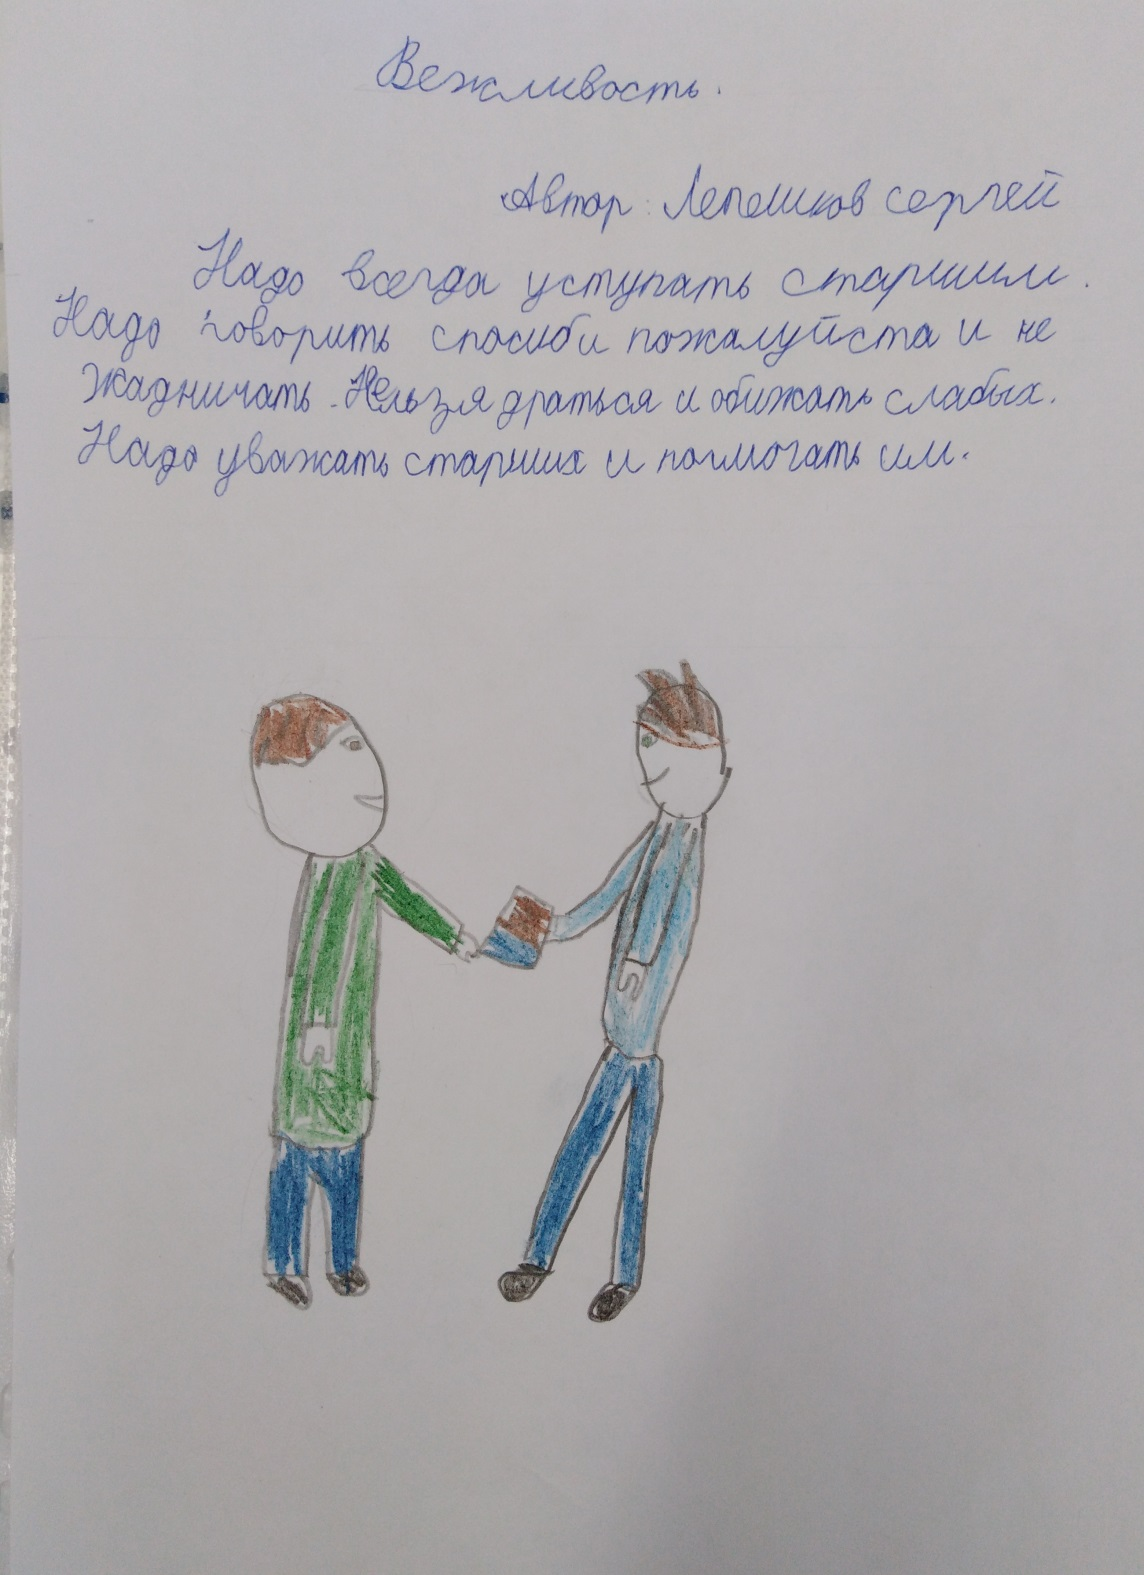 Вежливость.
Автор: Лепешков сергей
Надо всегда уступать старшим.
Надо говорить спосиби пожалуйста и не
жадничать. Нельзя драться и обижать слабых.
Надо уважать старших и помогать им.